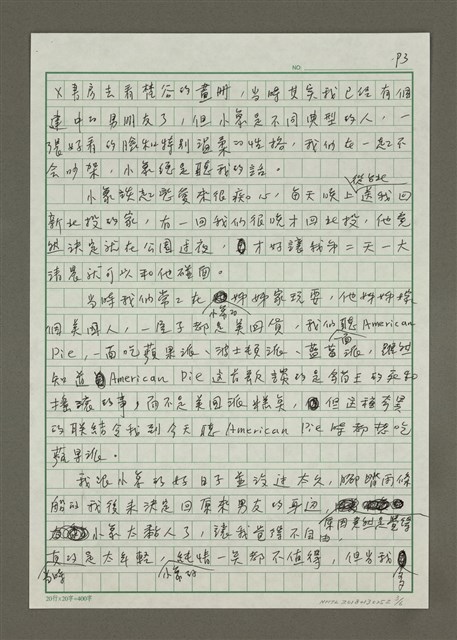 P3
NO:
書房去看梵谷的畫冊,當時其實我已經有個
建中的男朋友了,但小氣是不同典型的人,一
張好看的臉和特別溫柔的性格,我們在一起不
會吵架,小氣總是聽我的話。
小氣談起戀愛來很痴心,每天晚上從台北送我回
新北投的家,有一回我們很晚才回北投,他竟
然決定就在公園過夜,才好讓我第二天一大
清晨就可以和他碰面。
當時我們常常在小氣的姊姊家玩耍,他姊姊嫁
個美國人,一屋子都是美國貨,我們聽American
Pie,一面吃蘋果派、波士頓派、藍莓派,雖然
知道American Pie這首歌談的是貓王的死和
搖滾的事,而不是美國派糕點,但這種奇異
的聯結令我到今天聽American Pie時都想吃
蘋果派。
我跟小氣的好日子並沒過太久,腳踏兩條
船的我後來決定回原來男友的身邊
原因竟然是覺得
小氣太黏人了,讓我覺得不自由
真的是太年輕,純情一點都不值得,但當我
當時
小氣的
多
20行×20字=400字